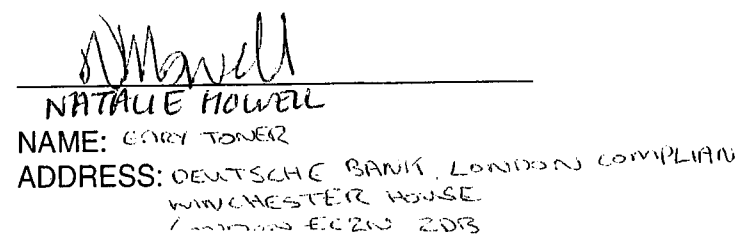 NATALIE HOWELL
NAME: GARY TONER
ADDRESS: DEUTSCHE BANK, LONDON COMPLIAN
WINCHESTER HOUSE
LONDON EC2N 2DB